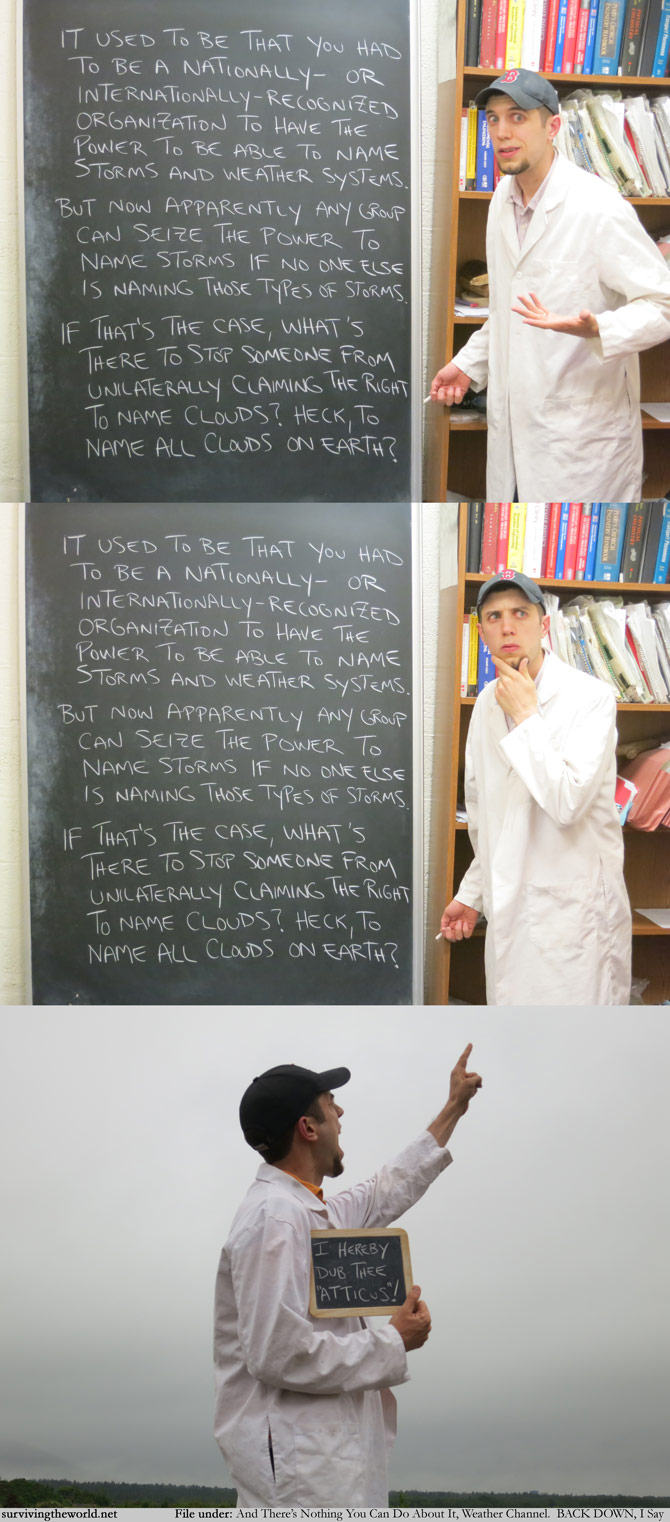 IT USED TO BE THAT YOU HAD
TO BE A NATIONALLY- OR
INTERNATIONALLY-RECOGNIZED
ORGANIZATION TO HAVE THE
POWER TO BE ABLE TO NAME
STORMS AND WEATHER SYSTEMS.
BUT NOW APPARENTLY ANY GROUP
CAN SEIZE THE POWER TO
NAME STORMS IF NO ONE ELSE
IS NAMING THOSE TYPES OF STORMS.
IF THAT'S THE CASE, WHAT'S
THERE TO STOP SOMEONE FROM
UNILATERALLY CLAIMING THE RIGHT
TO NAME CLOUDS? HECK, TO
NAME ALL CLOUDS ON EARTH?
B
IT USED TO BE THAT YOU HAD
TO BE A NATIONALLY- OR
INTERNATIONALLY-RECOGNIZED
ORGANIZATION TO HAVE THE
POWER TO BE ABLE TO NAME
STORMS AND WEATHER SYSTEMS.
BUT NOW APPARENTLY ANY GROUP
CAN SEIZE THE POWER TO
NAME STORMS IF NO ONE ELSE
IS NAMING THOSE TYPES OF STORMS.
IF THAT'S THE CASE, WHAT'S
THERE TO STOP SOMEONE FROM
UNILATERALLY CLAIMING THE RIGHT
TO NAME CLOUDS? HECK, TO
NAME ALL CLOUDS ON EARTH?
B
I HEREBY
DUB THEE
"ATTICUS"!
survivingtheworld.net File under: And There's Nothing You Can Do About It, Weather Channel. BACK DOWN, I Say